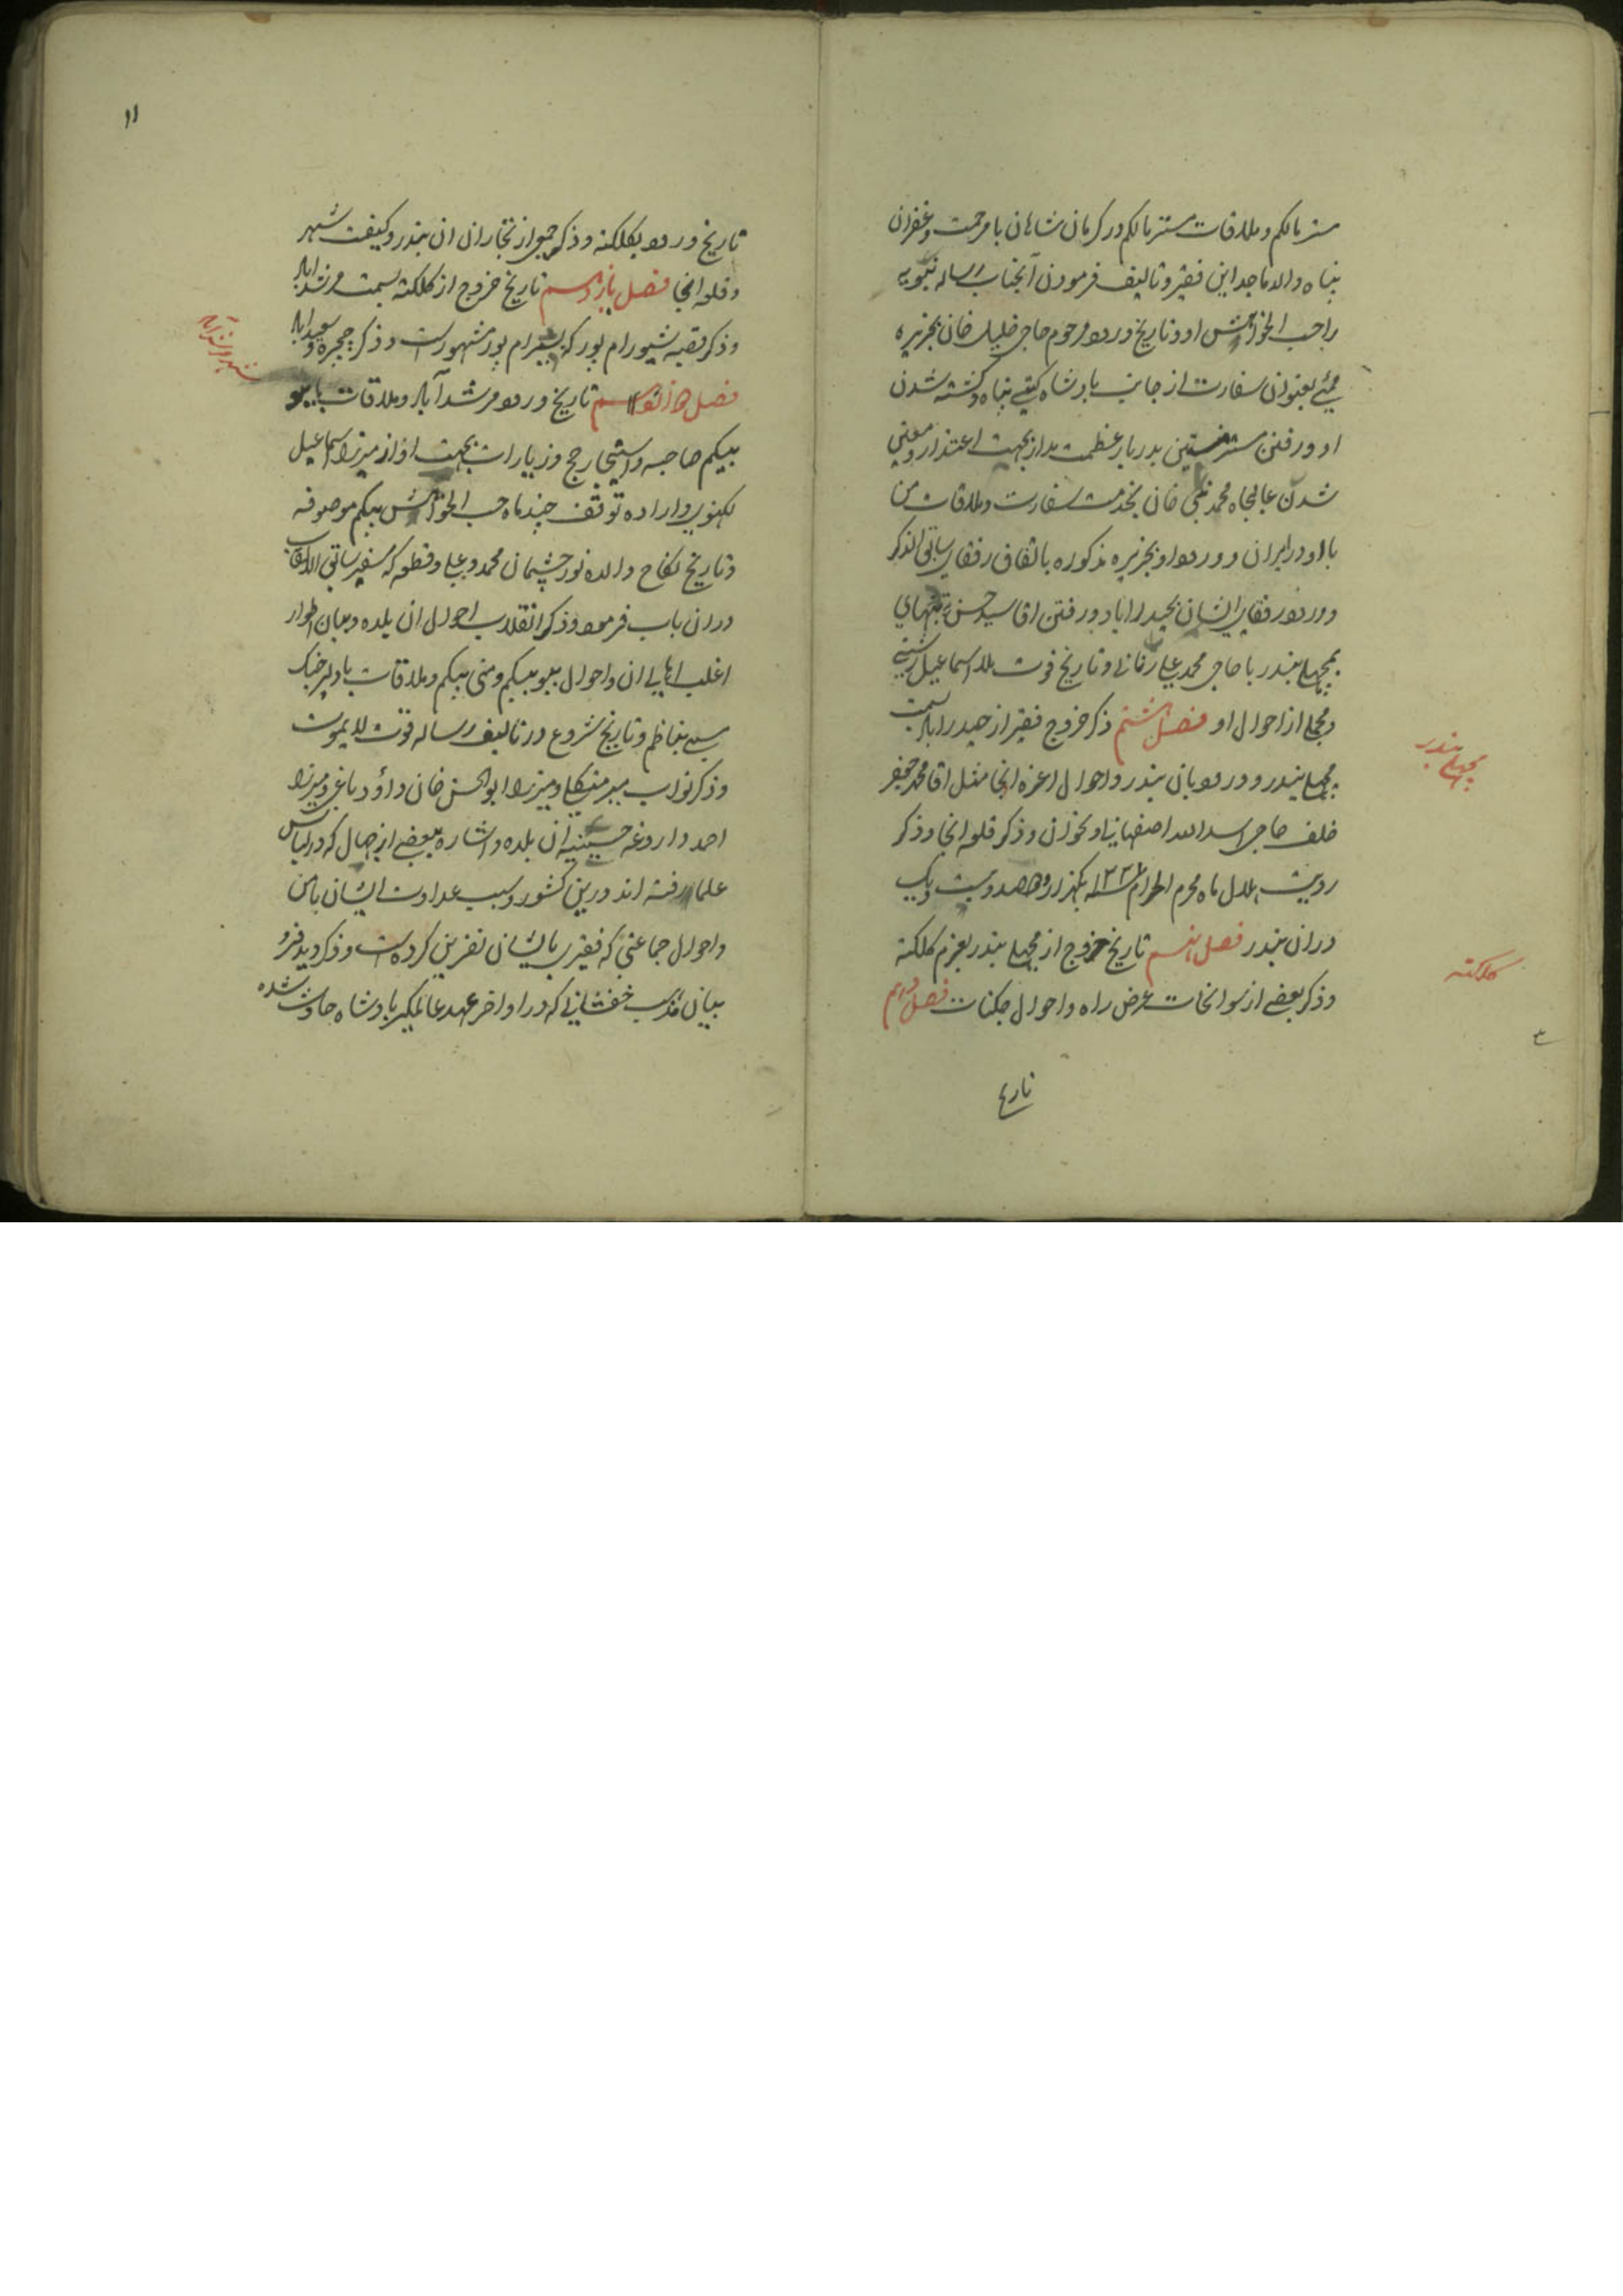 مستر مالکم و ملاقات مستر مالکم در کرمان شاهان با مرحمت و غفران
پناه والد ماجد این فقیر و تالیف فرمودن آنجناب رساله نبویه
را حسب الخواهش او و تاریخ ورود مرحوم حاجی خلیل خان بجزیره
ممبئی بعنوان سفارت از جانب بادشاه گیتی پناه و کشته شدن
او و رفتن مستر بدربار عظمت مدار بجهت اعتذار و معین
شدن عالیجاه محمد نبی خان بخدمت سفارت و ملاقات من
با او در ایران و ورود او بجزیره مذکوره باتفاق رفقای سابق الذکر
و ورود رفقای ایشان بحیدراباد و رفتن اقا سید حسن به تنهای
بمچهلی بندر با حاجی محمد علی و تاریخ فوت ملا اسماعیل رشتی
و مجملی از احوال او فصل هشتم ذکر خروج فقیر از حیدراباد بسمت
مچهلی بندر و ورود بان بندر و احوال اعزه انجا مثل اقا محمد جعفر
خلف حاجی اسد الله اصفهانی و اخوان و ذکر قلعه انجا و ذکر
رویت هلال ماه محرم الحرام ۱۲۲۱ یکهزار و دوصد و بیست و یک
دران بندر فصل نهم تاریخ خروج از مچهلی بندر بعزم کلکته
و ذکر بعضی از سوانحات عرض راه و احوال جکنات فصل دهم
تاریخ
مچهلی بندر
کلکته
۱۱
تاریخ ورود بکلکته و ذکر جمعی از تجاران ان بندر و کیفیت شهر
و قلعه انجا فصل یازدهم تاریخ خروج از کلکته بسمت مرشداباد
و ذکر قصبه شیورام پور که بسیرام پور مشهورست و ذکر چچره و سعیداباد
فصل دوازدهم تاریخ ورود مرشدآباد و ملاقات با ببو
بیکم صاحبه و استیجار حج و زیارات بجهت او از میرزا اسماعیل
لکهنوی و اراده توقف چند ماه حسب الخواهش بیکم موصوفه
و تاریخ نکاح والده نور چشمان محمد و علی و قطعه که سفیر سابق الالقاب
دران باب فرمود و ذکر انقلاب احوال ان بلده و بیان اطوار
اغلب اهالی ان و احوال ببو بیکم و منی بیکم و ملاقات با دلیر جنک
سمی بناظم و تاریخ شروع در تالیف رساله قوت لا یموت
و ذکر نواب میر منکلی و میرزا ابوالحسن خان و میرزا
احمد داروغه حسینیه ان بلده و اشاره ببعضی از جهال که در لباس
علما رفته اند درین کشور و سبب عداوت ایشان با من
و احوال جماعتی که فقیر بایشان نفرین کرده است و ذکر دیدفرو
بیان مذهب خفشانی که در اواخر عهد عالمکیر بادشاه حادث شده
شهر مرشدآباد